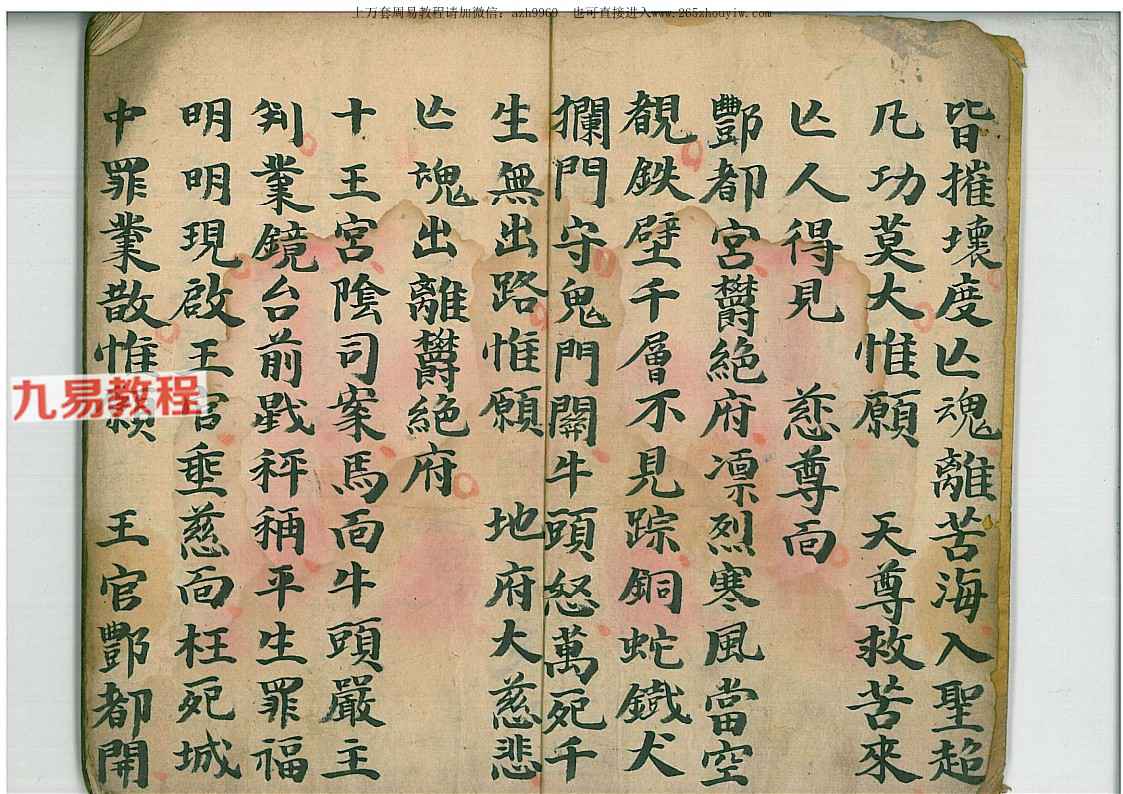 上万套周易教程请加微信：azh9969 也可直接进入www.265zhouyiw.com
皆摧壞度亾魂離苦海入聖超
凡功莫大惟願 天尊救苦來
亾人得見 慈尊面
酆都宮欝絕府凛烈寒風當空
覩鉄壁千層不見踪銅蛇鐵犬
攔門守鬼門關牛頭怒萬死千
生無出路惟願 地府大慈悲
亾魂出離欝絕府
十王宮陰司案馬面牛頭嚴主
判業鏡台前戥秤稱平生罪福
明明現啟王官垂慈面枉死城
中罪業散惟願 王官酆都開
九易教程